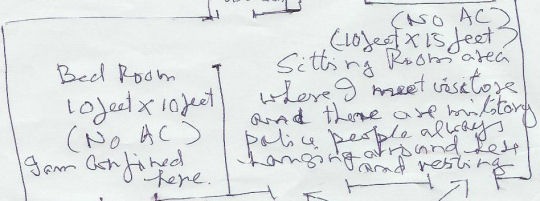 Bed Room
10 feet X 10 feet
(No AC)
I am confined
here.
(No AC)
(10 feet X 15 feet)
Sitting Room area
where I meet visitors
and there are military
police people always
hanging around here
and resting